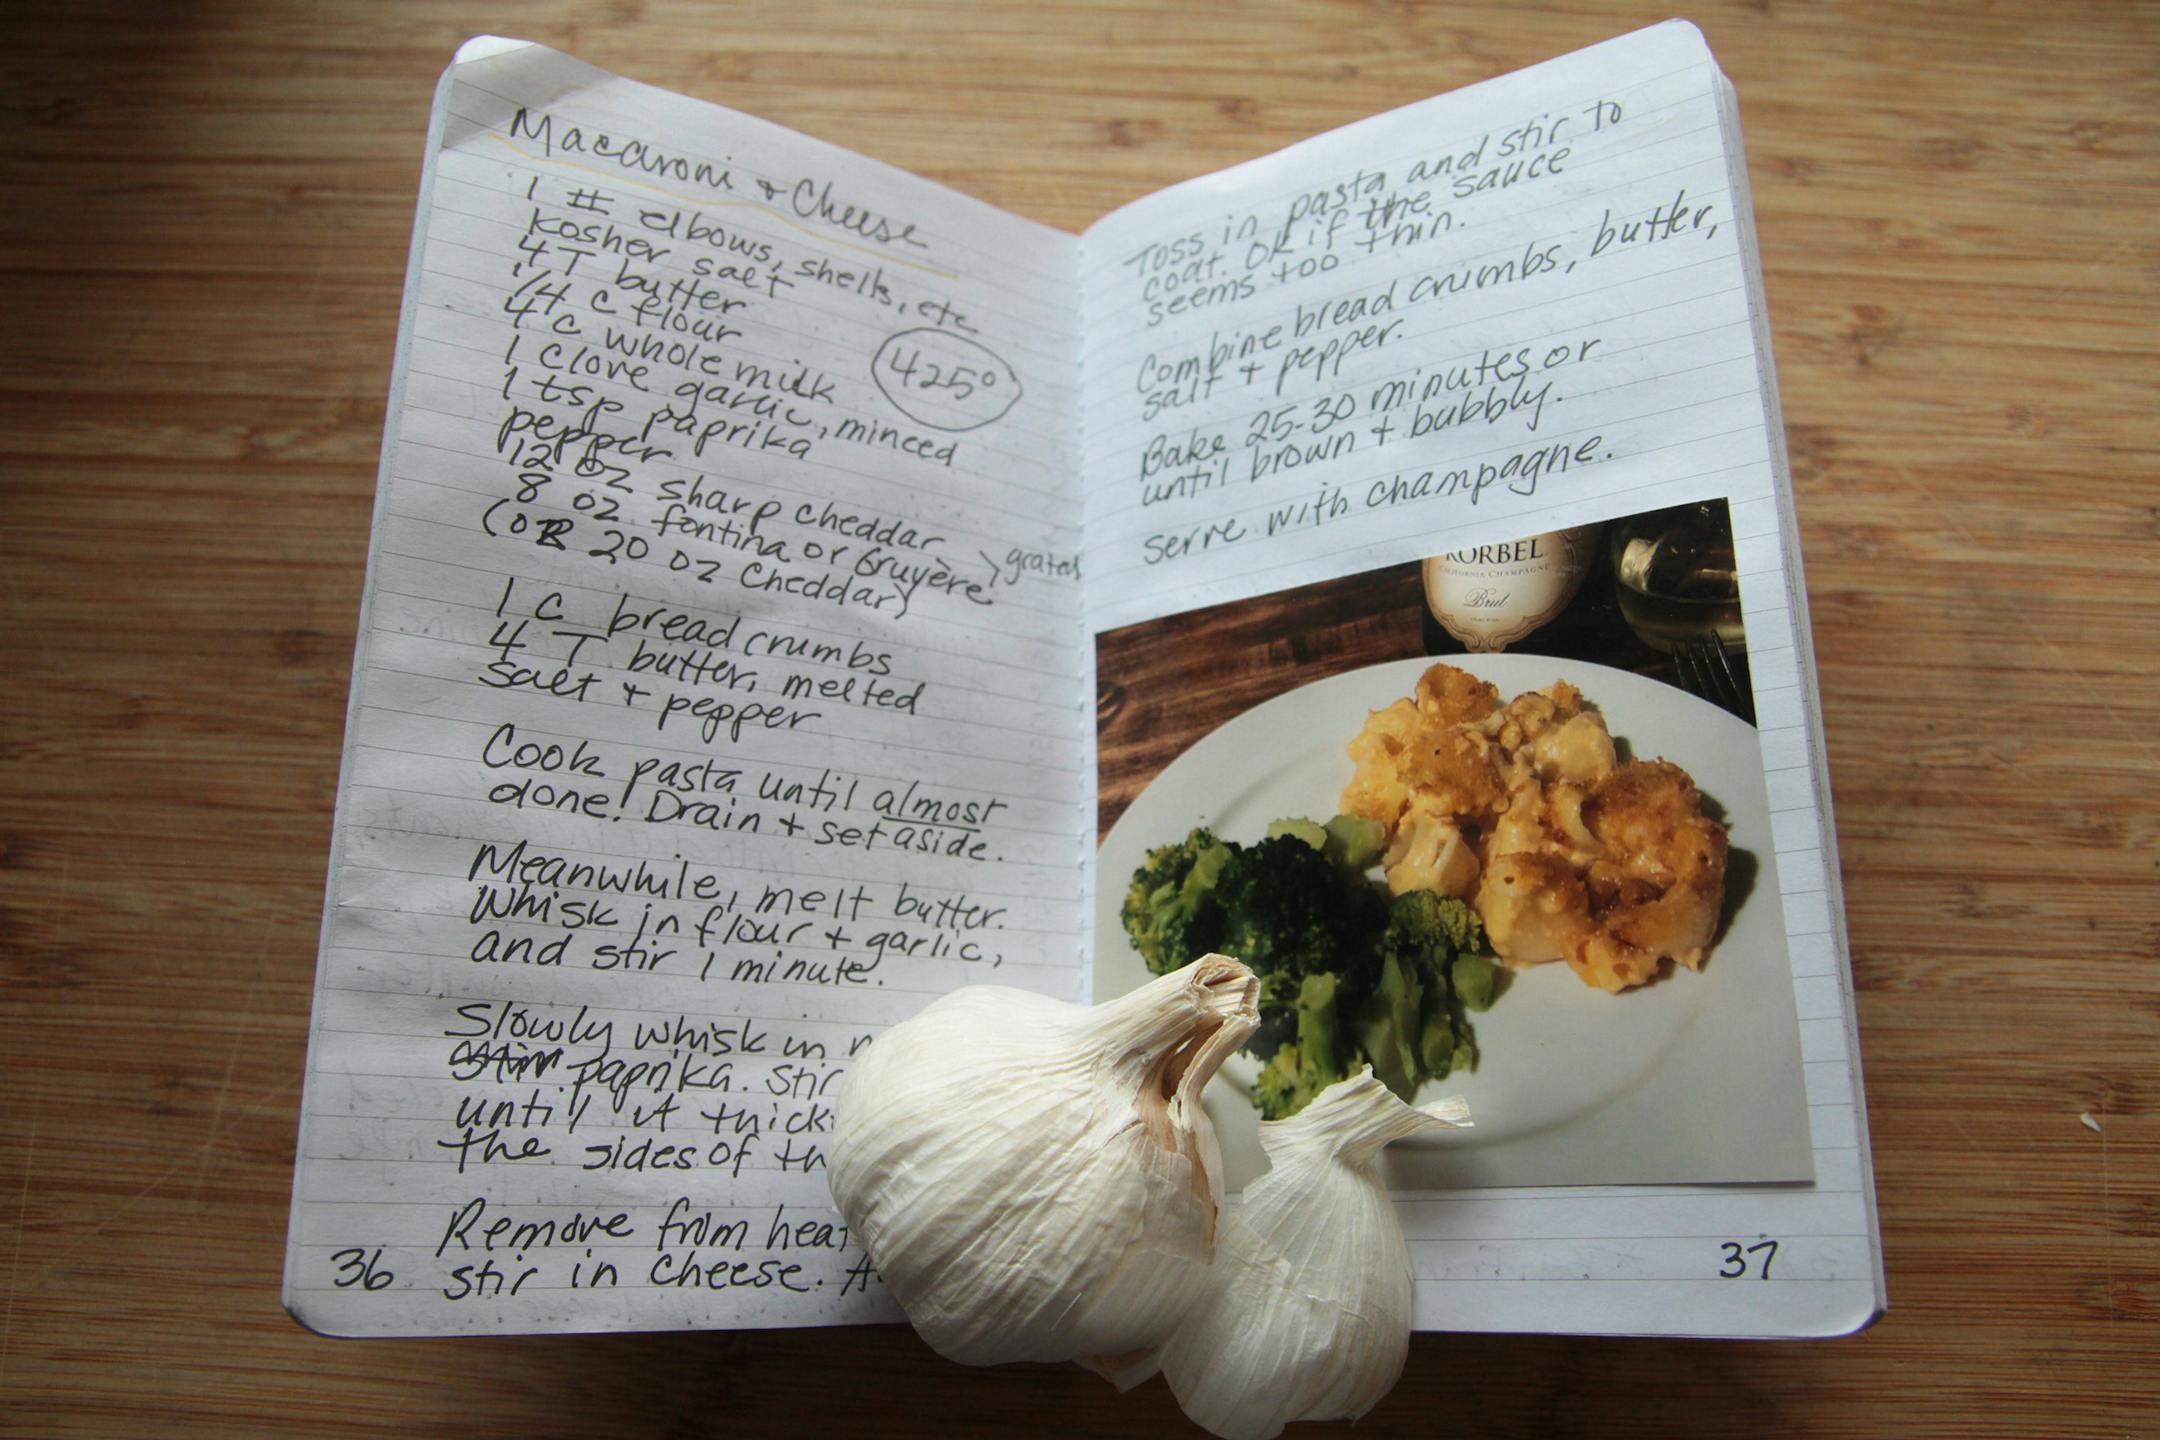 Macaroni + Cheese
1 # elbows, shells, etc
Kosher salt
4 T butter
1/4 c flour
4 c whole milk
425°
1 clove garlic, minced
1 tsp paprika
pepper
12 oz sharp cheddar
8 oz fontina or Gruyère
grated
(OR 20 oz cheddar)
1 c bread crumbs
4 T butter, melted
salt + pepper
Cook pasta until almost
done! Drain + set aside.
Meanwhile, melt butter.
Whisk in flour + garlic,
and stir 1 minute.
Slowly whisk in
paprika. Stir
until it
the sides of
Remove from
stir in cheese.
36
Toss in pasta and stir to
coat. OK if the sauce
seems too thin.
Combine bread crumbs, butter,
salt + pepper.
Bake 25-30 minutes or
until brown + bubbly.
Serve with champagne.
KORBEL
CALIFORNIA CHAMPAGNE
Brut
37